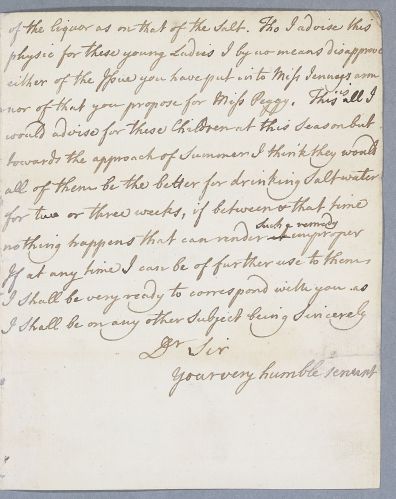 of the liquor as on that of the Salt. Tho I advise this
physic for these young Ladies I by no means disapprove
either of the Issue you have put into Miss Jennys arm
nor of that you propose for Miss Peggy. This is all I
would advise for these Children at this Season but
towards the approach of Summer I think they would
all of them be the better for drinking Salt water
for two or three weeks, if between & that time
such a remedy
nothing happens that can render improper
If at any time I can be of further use to them
I shall be very ready to correspond with you as
I shall be on any other Subject being Sincerely
Dr Sir
your very humble servant